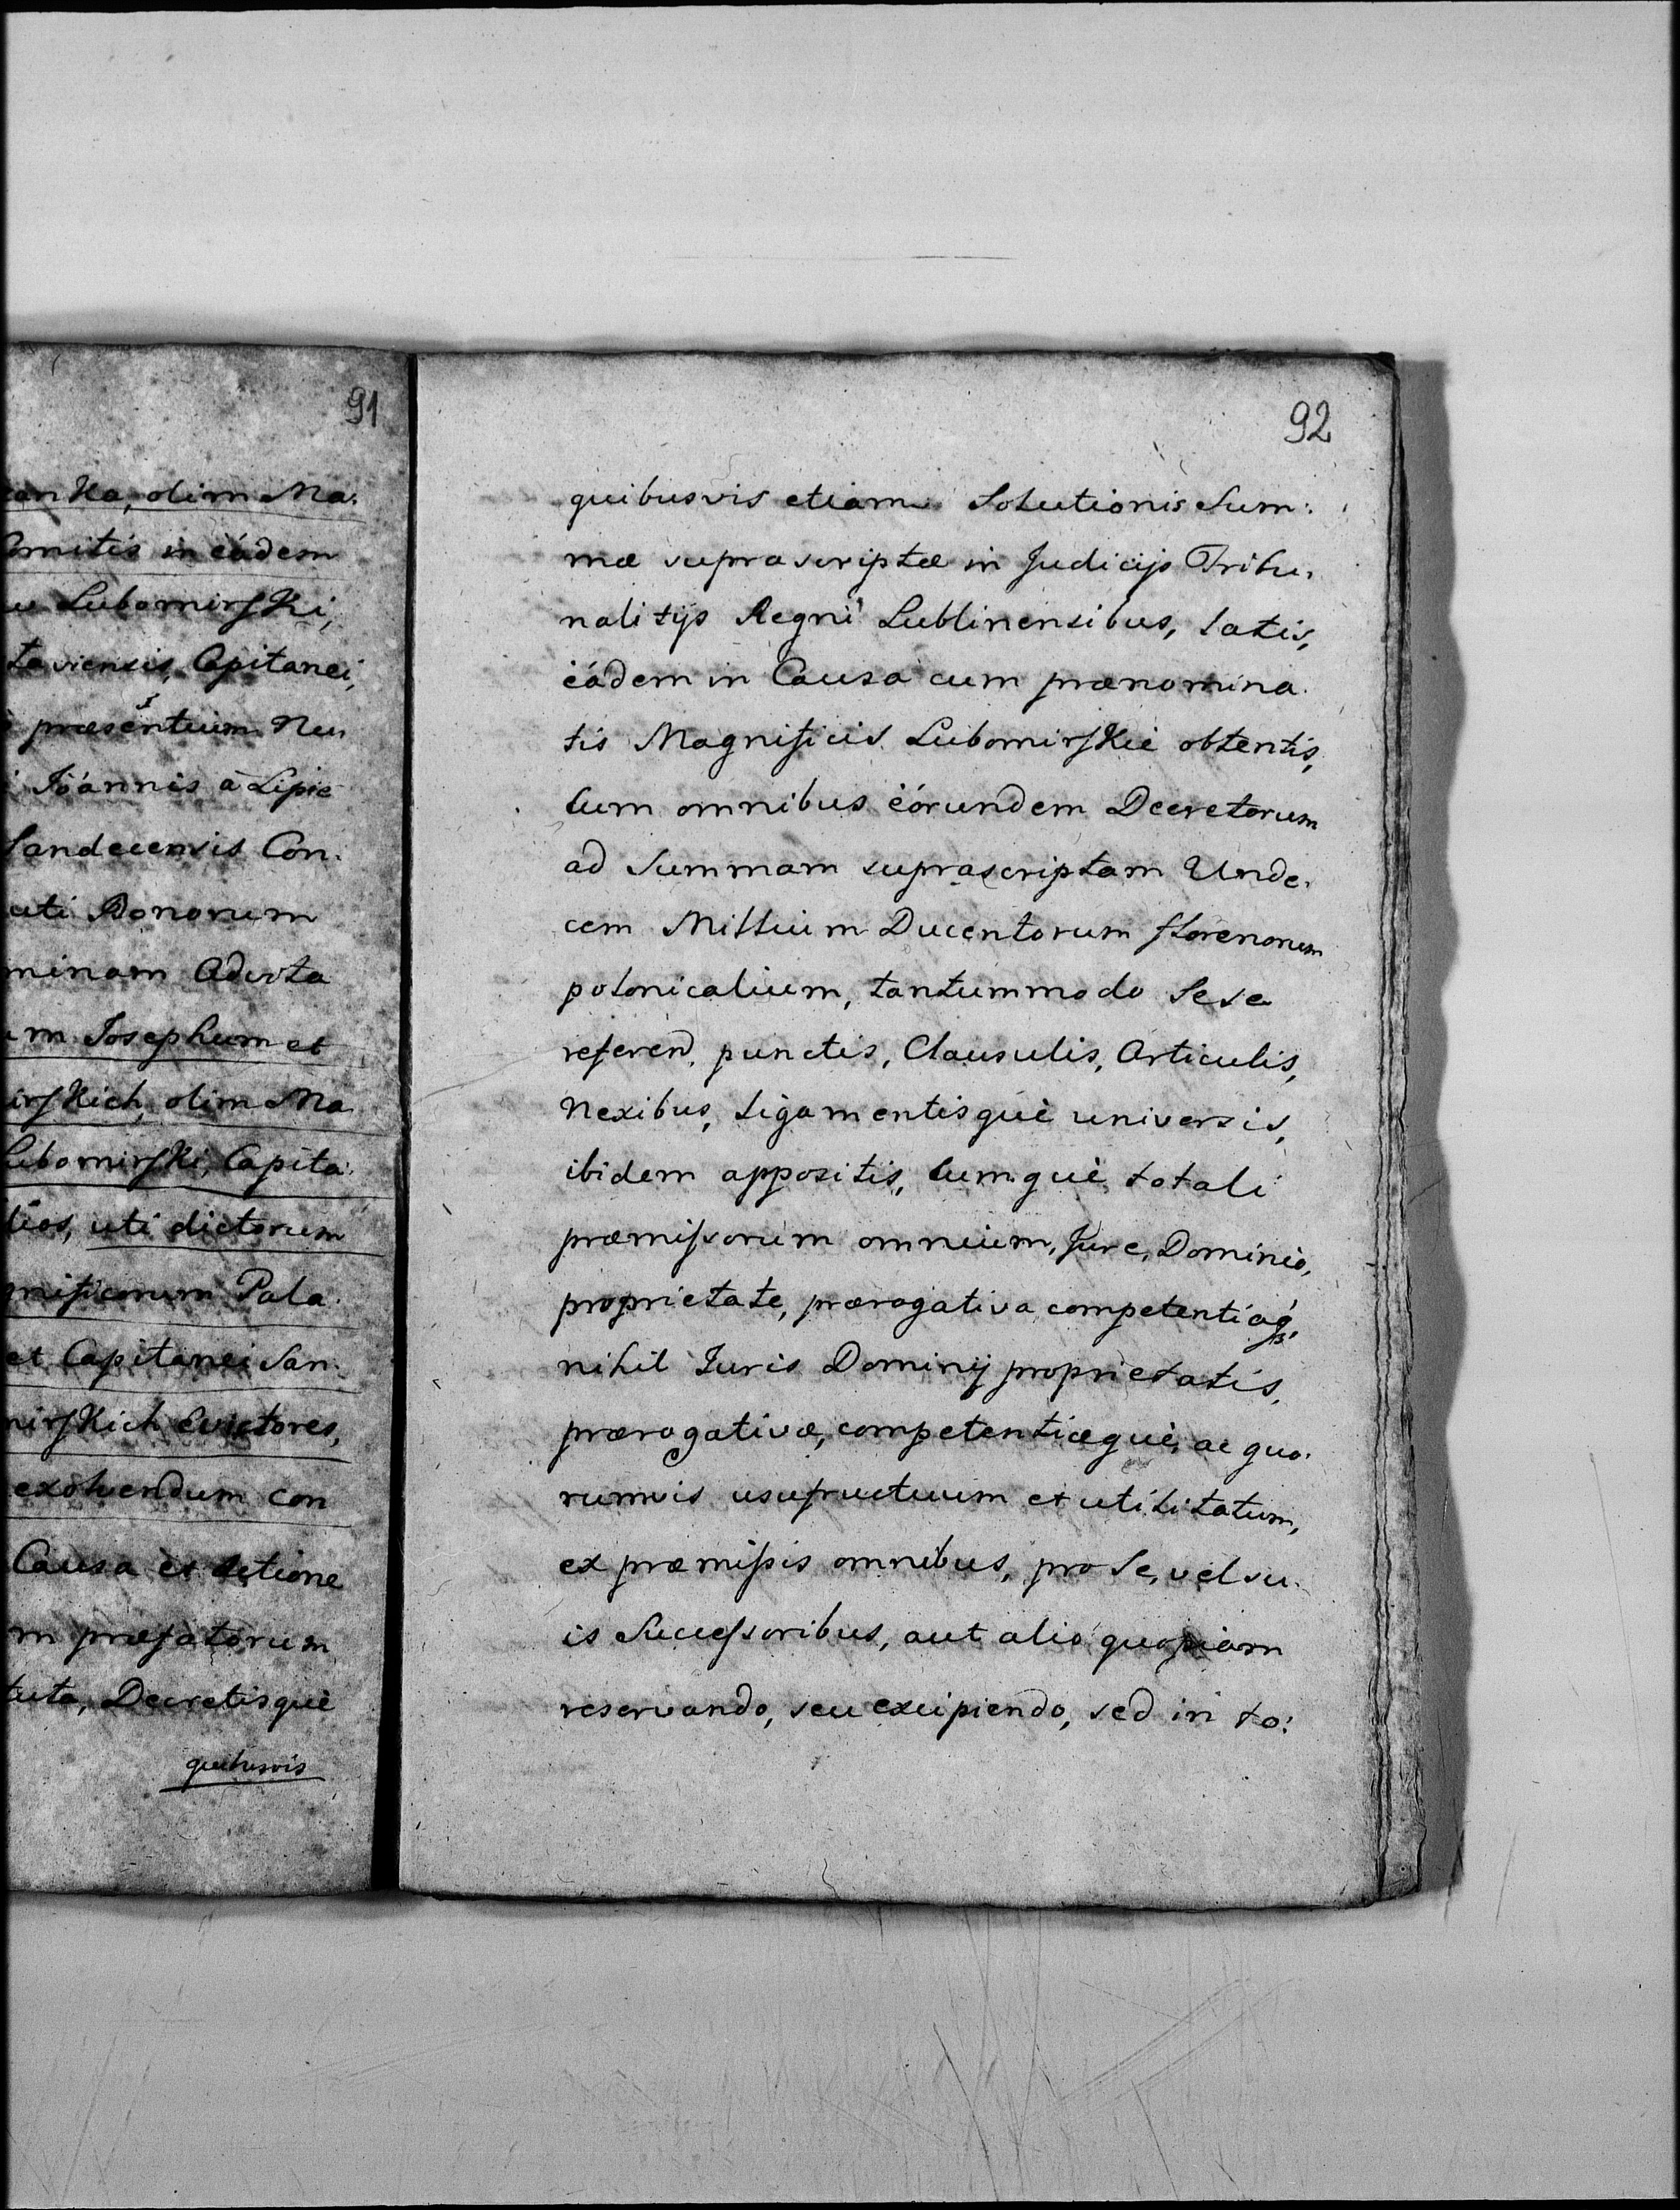 91
anka, olim Ma:
Comitis in eádem
Lubomirski,
taviensis, Capitanei,
præsentium Neu
Jóánnis à Lipie
Sandecensis Con:
uti Bonorum
minam Advota
m Josephum et
irskich, olim Ma
Lubomirski, Capita:
lios, uti dictorum
gnificorum Pala:
et Capitanei San:
mirskich Evictores,
exolvendum con
Causa et Actione
m præfatorum
tuta, Decretisquè
quibusvis
92
quibusvis etiam Solutionis Sum:
mæ suprascriptæ in Judicijs Tribu:
nalitijs Regni Lublinensibus, latis,
eádem in Causa cum prænomina:
tis Magnificis Lubomirskie obtentis,
Cum omnibus eórundem Decretorum
ad Summam suprascriptam Unde:
cem Millium Ducentorum florenorum
polonicalium, tantummodo Sese
referend. punctis, Clausulis, Articulis,
Nexibus, Ligamentisquè universis,
ibidem appositis, Cumquè totali
præmissorum omnium, Jure, Dominio,
proprietate, prærogativa competentiáq́ꝫ,
nihil Juris Dominij proprietatis,
prærogativæ, competentiæquè, ac quo:
rumvis usufructuum et utilitatum,
ex præmissis omnibus, pro Se, vel su:
is Successoribus, aut alio quopiam
reservando, seu excipiendo, sed in to: